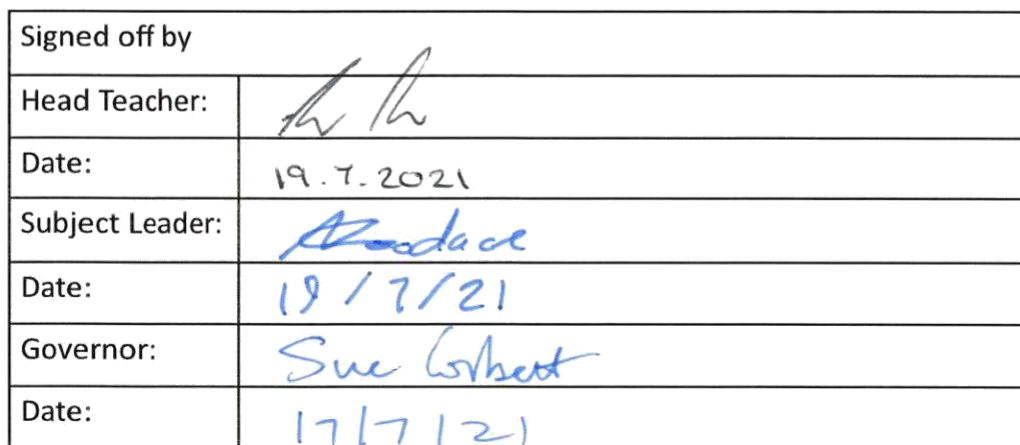 Signed off by
Head Teacher:
Date: 19.7.2021
Subject Leader:
Date: 19/7/21
Governor: Sue Corbett
Date: 17/7/21